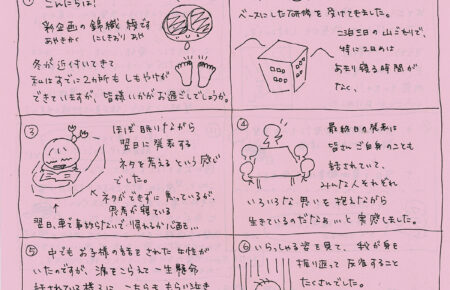 ①
こんにちは!
彩企画の錦織 綾です
あやきかく にしきおり あや
冬が近付いてきて
私はすでに2カ所も しもやけが
できていますが、皆様いかがお過ごしでしょうか。
ベースにした研修を受けてきました。
二泊三日の山ごもりで、
特に2日めは
あまり寝る時間が
なく、
③
ほぼ眠りながら
翌日に発表する
ネタを考えるという感じ
でした。
ネタができずに焦っているが、
思考が寝ている
④
最終日の発表は
皆さんご自身のことも
話されていて、
みんな人それぞれ
いろいろな思いを抱えながら
生きているのだなあぃと実感しました。
⑤
中でもお子様の話をされた女性が
いたのですが、涙をこらえて一生懸命
話されている様子に、こちらももらい泣き
⑥
いらっしゃる姿を見て、私が身を
振り返って反省すること
たくさんでした。